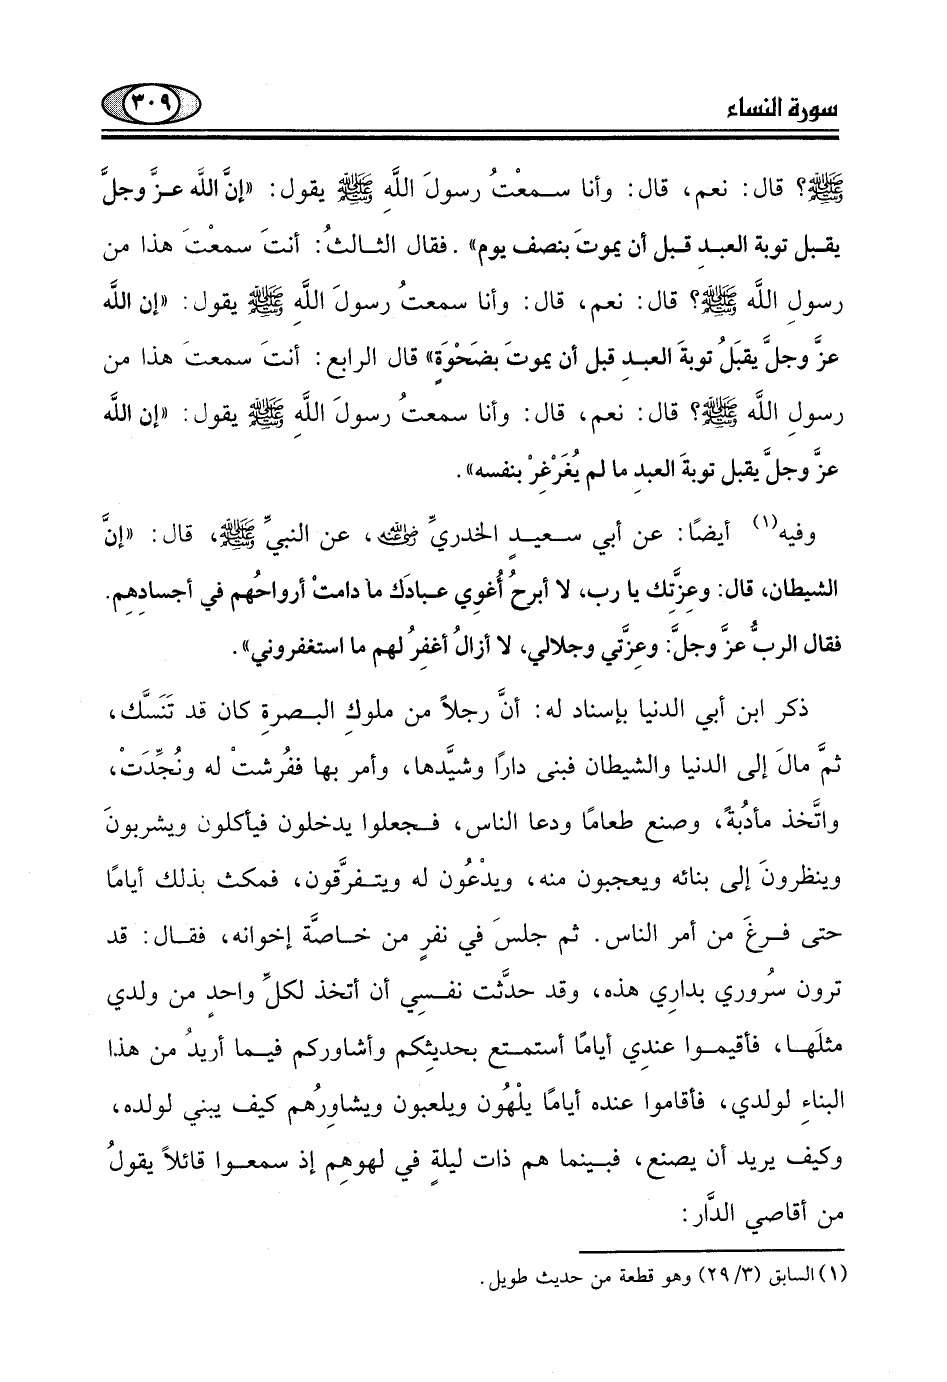 سورة النساء ٣٠٩
ﷺ؟ قال: نعم، قال: وأنا سمعْتُ رسولَ اللَّهِ ﷺ يقول: «إنَّ اللَّه عزَّ وجلَّ
يقبل توبة العبدِ قبل أن يموتَ بنصف يوم». فقال الثالثُ: أنتَ سمعْتَ هذا من
رسولِ اللَّه ﷺ؟ قال: نعم، قال: وأنا سمعتُ رسولَ اللَّهِ ﷺ يقول: «إن اللَّه
عزَّ وجلَّ يقبَلُ توبةَ العبدِ قبل أن يموتَ بضَحْوَةٍ» قال الرابع: أنتَ سمعتَ هذا من
رسولِ اللَّه ﷺ؟ قال: نعم، قال: وأنا سمعتُ رسولَ اللَّهِ ﷺ يقول: «إن اللَّه
عزَّ وجلَّ يقبل توبةَ العبدِ ما لم يُغَرْغِرْ بنفسه».
وفيه(١) أيضًا: عن أبي سعيدٍ الخدريِّ رضي الله عنه، عن النبيِّ ﷺ، قال: «إنَّ
الشيطان، قال: وعزَّتِك يا رب، لا أبرحُ أُغوي عبادَك ما دامتْ أرواحُهم في أجسادِهِم.
فقال الربُّ عزَّ وجلَّ: وعزَّتي وجلالي، لا أزالُ أغفرُ لهم ما استغفروني».
ذكر ابن أبي الدنيا بإسناد له: أنَّ رجلاً من ملوكِ البصرةِ كان قد تَنَسَّك،
ثمَّ مالَ إلى الدنيا والشيطان فبنى دارًا وشيَّدها، وأمر بها ففُرشتْ له ونُجِّدَتْ،
واتَّخذ مأدُبةً، وصنع طعامًا ودعا الناس، فجعلوا يدخلون فيأكلون ويشربونَ
وينظرونَ إلى بنائه ويعجبون منه، ويدْعُون له ويتفرَّقون، فمكث بذلك أيامًا
حتى فرغَ من أمر الناس. ثم جلسَ في نفرٍ من خاصَّة إخوانه، فقال: قد
ترون سُروري بداري هذه، وقد حدَّثت نفسِي أن أتخذ لكلِّ واحدٍ من ولدي
مثلَها، فأقيموا عندي أيامًا أستمتع بحديثِكم وأشاوركم فيما أريدُ من هذا
البناءِ لولدي، فأقاموا عنده أيامًا يلْهُون ويلعبون ويشاورُهم كيف يبني لولده،
وكيف يريد أن يصنع، فبينما هم ذات ليلةٍ في لهوهِم إذ سمعوا قائلاً يقولُ
من أقاصي الدَّار:
(١) السابق (٣/ ٢٩) وهو قطعة من حديث طويل.